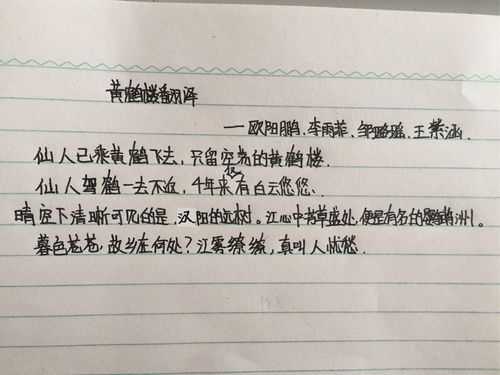 黄鹤楼翻译
—欧阳鹏、李雨菲、邹璐瑶、王紫涵.
仙人已乘黄鹤飞去,只留空荡的黄鹤楼.
仙人驾鹤一去不返,4年来仅有白云悠悠、
晴空下清晰可见的是,汉阳的远树。江心中芳草盛处,便是有名的鹦鹉洲。
暮色苍苍,故乡在何处?江雾缭缭,真叫人忧愁.